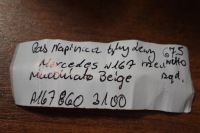 Pas Napinacz tylny lewy 675
Mercedes W167 netto
Macchiato Beige szt.
A167 860 3100